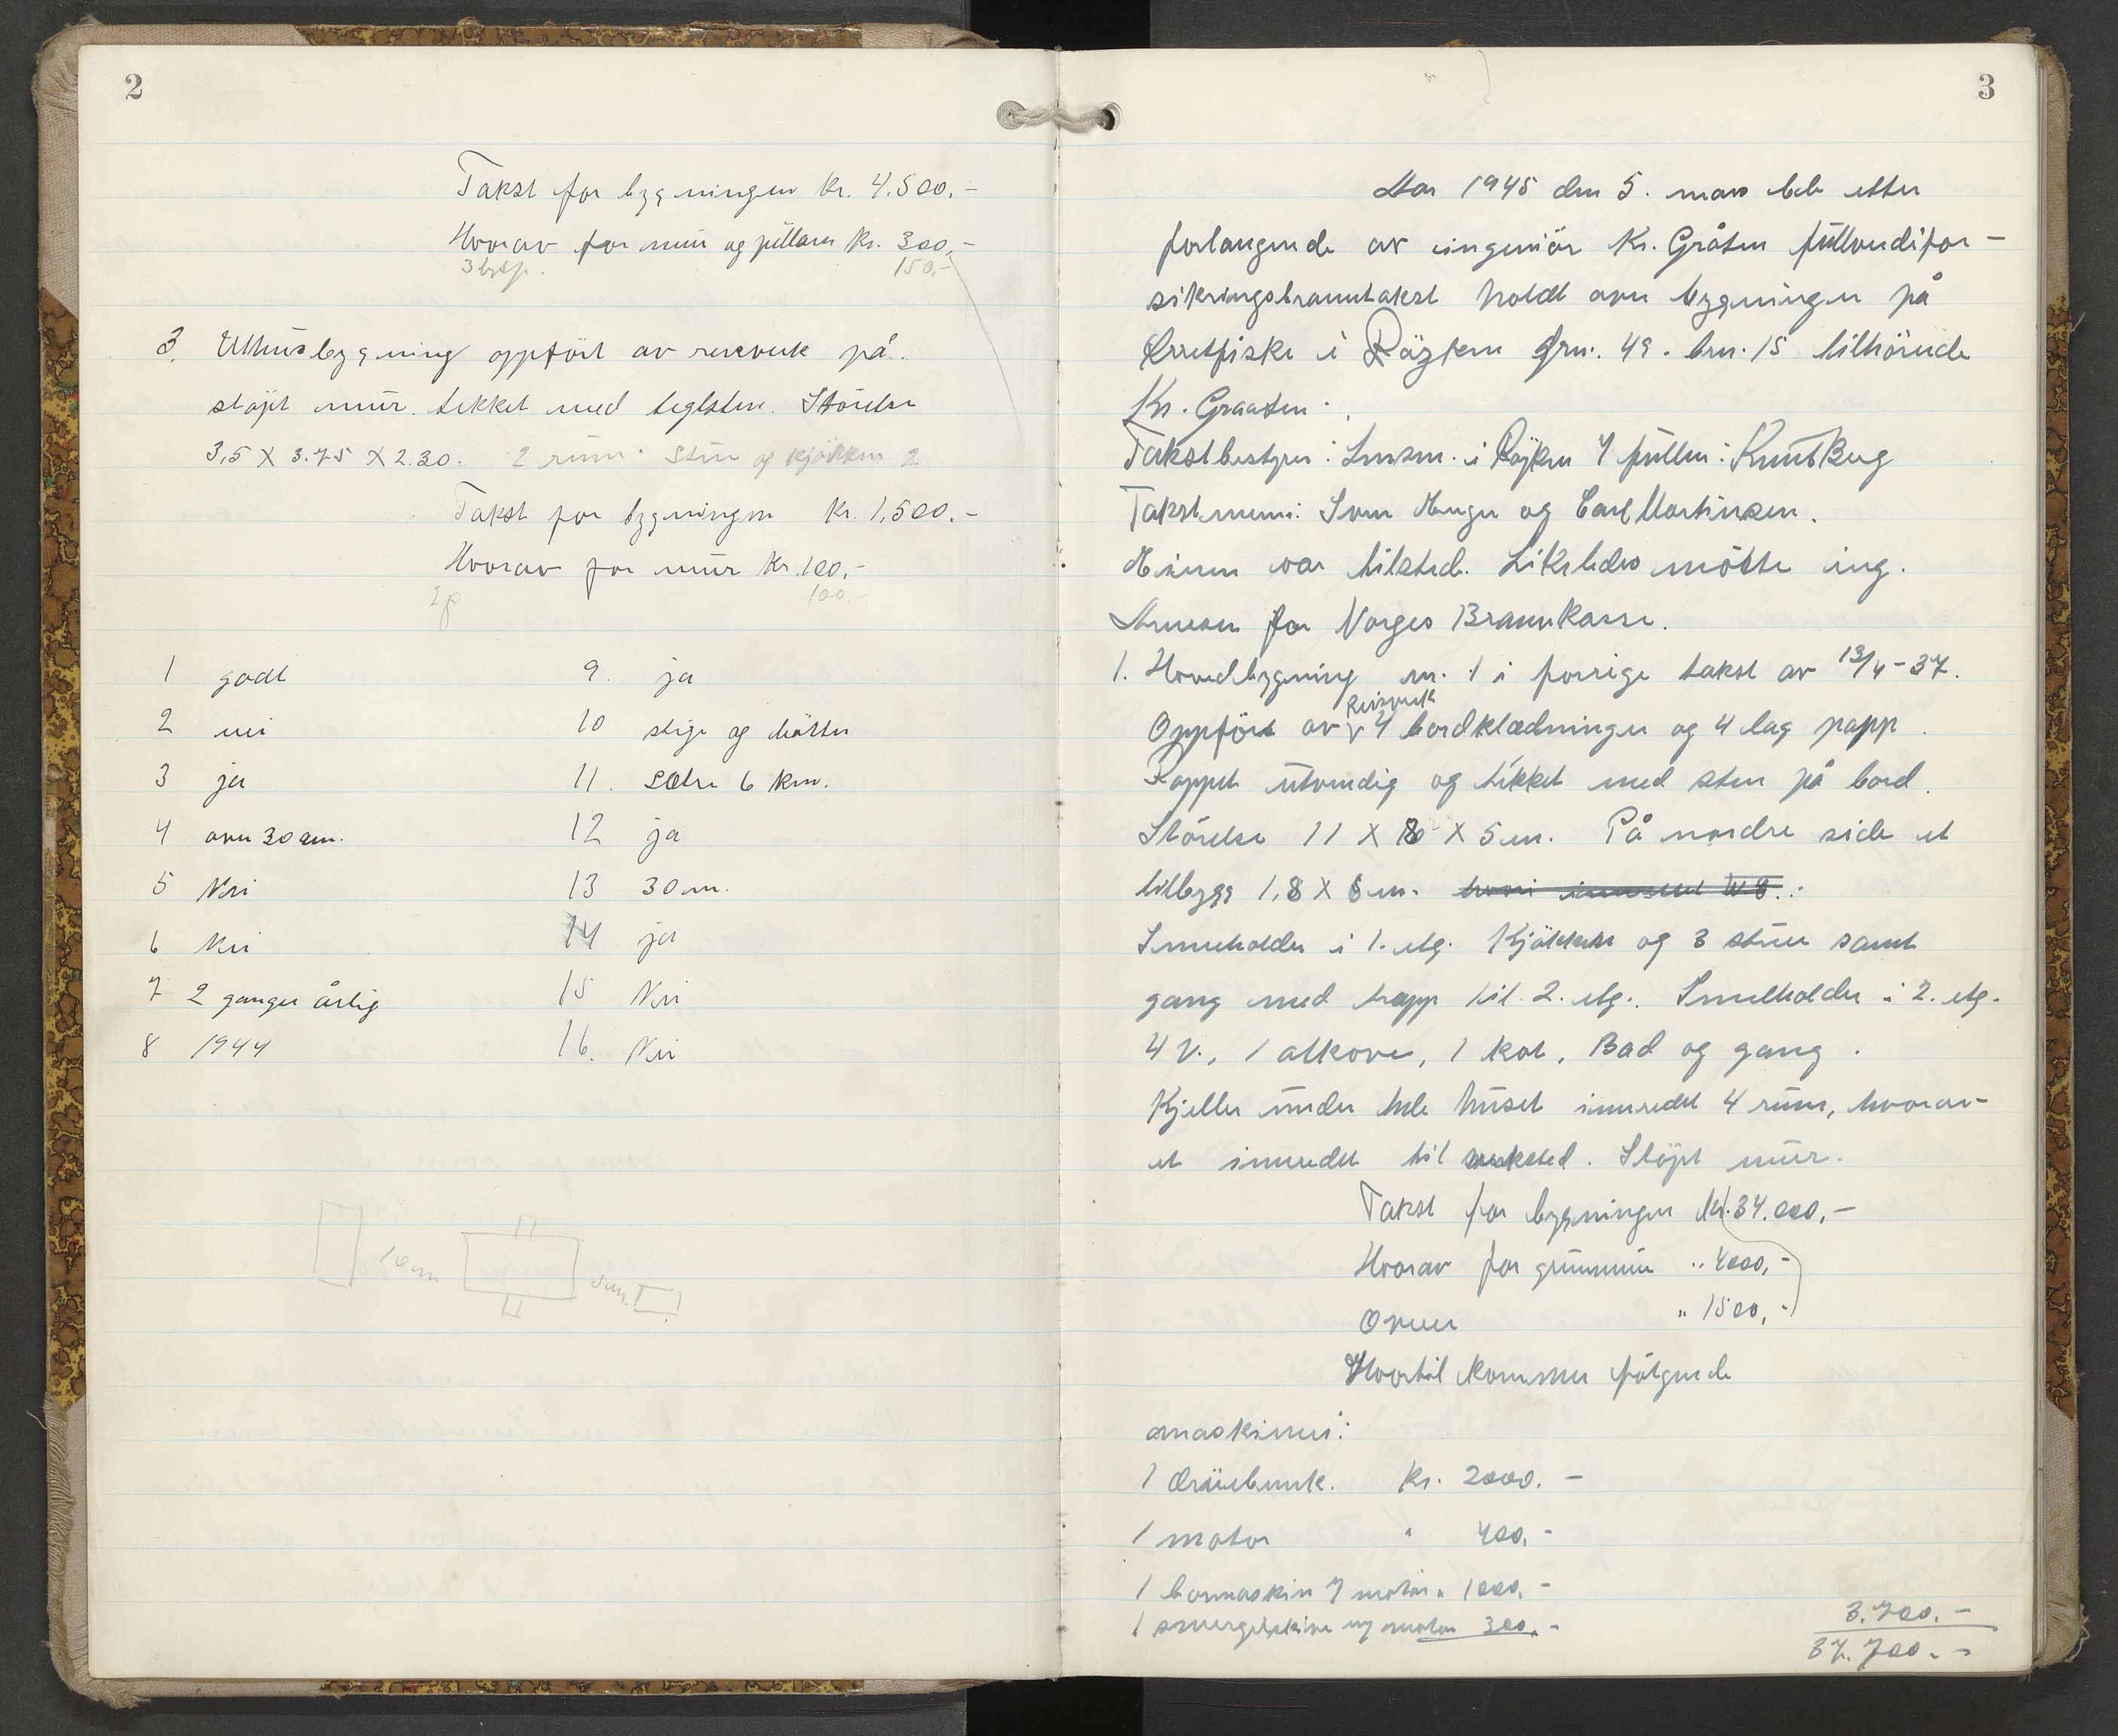 2
Takst for bygningen kr. 4.500.-
Hvorav for mur og pillarer kr. 300,-
3 brsp. 150,-
3. Uthusbygning oppført av reisverk på
støpt mur. tekket med teglsten. Størelse
3,5 X 3.75 X 2.30. 2 rum. Stue og kjøkken 2
Takst for bygningen kr. 1.500.-
Hvorav for mur kr. 100,-
1 p 100.-
1 godt
2 nei
3 ja
4 over 30 cm.
5 Nei
6 Nei
7 2 ganger årlig
8 1944
9. ja
10 stige og bøtter
11. Sætre 6 km.
12 ja
13 30 m.
14 ja
15 Nei
16. Nei
10 m 5 m.
3
Aar 1945 den 5. mars ble etter
forlangende av ingeniør Kr. Gråten fullverdifor-
sikringsbranntakst holdt over bygningen på
Ørretfiske i Røyken Grn. 49. brn. 15 tilhørende
Kr. Graaten.
Takstbestyrer: Lensm. i Røyken v/ fullm: Knut Berg
Takstmenn: Sven Henger og Carl Martinsen.
Eieren var tilsted. Likeledes møtte ing.
Arnesen for Norges Brannkasse.
1. Hovedbygning nr. 1 i forrige takst av 13/4-37.
Reisverk
Oppført av v 4 bordklædninger og 4 lag papp.
Pappet utvendig og tekket med sten på bord.
Størelse 11 X 8 X 5 m. På nordre side et
tilbygg 1,8 X 6 m. hvori innredet W.C.
Inneholder i 1. etg. Kjøkken og 3 stuer samt
gang med trapp til 2. etg. Innelholder i 2. etg.
4 V., 1 alkove, 1 kot, Bad og gang.
Kjeller under hele huset innredet 4 rum, hvorav-
et innredet til verksted. Støpt mur.
Takst for bygningen kr. 34.000,-
Hvorav for grunnmur " 4000,-
Ovner " 1500,-
Hvortil kommer følgende
maskiner:
1 dreiebenk. Kr. 2000.-
1 motor " 400,-
1 bormaskin m/ motor " 1000.-
1 smergelskive m/ motor 300.-
3.700.-
37.700.-